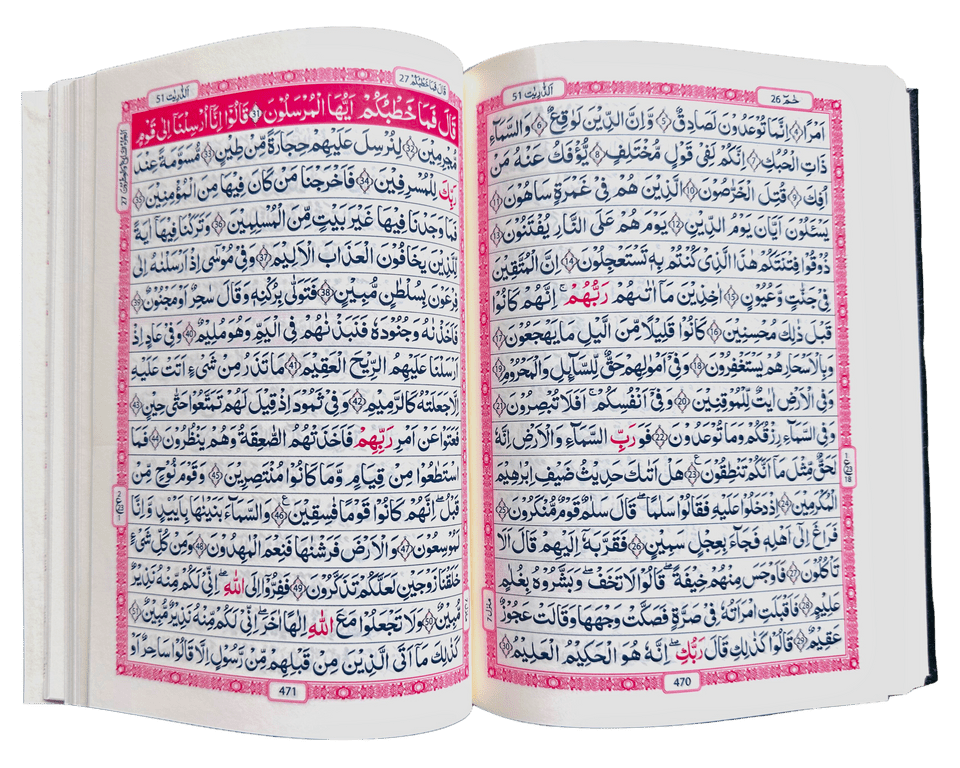 الذّٰریٰت 51
حٰمٓ 26
اَمْرًا ﴿4﴾ اِنَّمَا تُوْعَدُوْنَ لَصَادِقٌ ﴿5﴾ وَّاِنَّ الدِّیْنَ لَوَاقِعٌ ﴿6﴾ وَالسَّمَآءِ
ذَاتِ الْحُبُكِ ﴿7﴾ اِنَّكُمْ لَفِیْ قَوْلٍ مُّخْتَلِفٍ ﴿8﴾ یُّؤْفَكُ عَنْهُ مَنْ
اُفِكَ ﴿9﴾ قُتِلَ الْخَرّٰصُوْنَ ﴿10﴾ الَّذِیْنَ هُمْ فِیْ غَمْرَةٍ سَاهُوْنَ ﴿11﴾
یَسْـَٔلُوْنَ اَیَّانَ یَوْمُ الدِّیْنِ ﴿12﴾ یَوْمَ هُمْ عَلَی النَّارِ یُفْتَنُوْنَ ﴿13﴾
ذُوْقُوْا فِتْنَتَكُمْ هٰذَا الَّذِیْ كُنْتُمْ بِهٖ تَسْتَعْجِلُوْنَ ﴿14﴾ اِنَّ الْمُتَّقِیْنَ
فِیْ جَنّٰتٍ وَّعُیُوْنٍ ﴿15﴾ اٰخِذِیْنَ مَاۤ اٰتٰىهُمْ رَبُّهُمْ ؕ اِنَّهُمْ كَانُوْا
قَبْلَ ذٰلِكَ مُحْسِنِیْنَ ﴿16﴾ كَانُوْا قَلِیْلًا مِّنَ الَّیْلِ مَا یَهْجَعُوْنَ ﴿17﴾
وَبِالْاَسْحَارِ هُمْ یَسْتَغْفِرُوْنَ ﴿18﴾ وَفِیْۤ اَمْوَالِهِمْ حَقٌّ لِّلسَّآىِٕلِ وَالْمَحْرُوْمِ ﴿19﴾
وَفِی الْاَرْضِ اٰیٰتٌ لِّلْمُوْقِنِیْنَ ﴿20﴾ وَفِیْۤ اَنْفُسِكُمْ ؕ اَفَلَا تُبْصِرُوْنَ ﴿21﴾
وَفِی السَّمَآءِ رِزْقُكُمْ وَمَا تُوْعَدُوْنَ ﴿22﴾ فَوَرَبِّ السَّمَآءِ وَالْاَرْضِ اِنَّهٗ
لَحَقٌّ مِّثْلَ مَاۤ اَنَّكُمْ تَنْطِقُوْنَ ﴿23﴾ هَلْ اَتٰىكَ حَدِیْثُ ضَیْفِ اِبْرٰهِیْمَ
الْمُكْرَمِیْنَ ﴿24﴾ اِذْ دَخَلُوْا عَلَیْهِ فَقَالُوْا سَلٰمًا ؕ قَالَ سَلٰمٌ قَوْمٌ مُّنْكَرُوْنَ ﴿25﴾
فَرَاغَ اِلٰۤی اَهْلِهٖ فَجَآءَ بِعِجْلٍ سَمِیْنٍ ﴿26﴾ فَقَرَّبَهٗۤ اِلَیْهِمْ قَالَ اَلَا
تَاْكُلُوْنَ ﴿27﴾ فَاَوْجَسَ مِنْهُمْ خِیْفَةً ؕ قَالُوْا لَا تَخَفْ ؕ وَبَشَّرُوْهُ بِغُلٰمٍ
عَلِیْمٍ ﴿28﴾ فَاَقْبَلَتِ امْرَاَتُهٗ فِیْ صَرَّةٍ فَصَكَّتْ وَجْهَهَا وَقَالَتْ عَجُوْزٌ
عَقِیْمٌ ﴿29﴾ قَالُوْا كَذٰلِكِ قَالَ رَبُّكِ ؕ اِنَّهٗ هُوَ الْحَكِیْمُ الْعَلِیْمُ ﴿30﴾
470
قَالَ فَمَا خَطْبُكُمْ 27
الذّٰریٰت 51
قَالَ فَمَا خَطْبُكُمْ اَیُّهَا الْمُرْسَلُوْنَ ﴿31﴾ قَالُوْۤا اِنَّاۤ اُرْسِلْنَاۤ اِلٰی قَوْمٍ
مُّجْرِمِیْنَ ﴿32﴾ لِنُرْسِلَ عَلَیْهِمْ حِجَارَةً مِّنْ طِیْنٍ ﴿33﴾ مُّسَوَّمَةً عِنْدَ
رَبِّكَ لِلْمُسْرِفِیْنَ ﴿34﴾ فَاَخْرَجْنَا مَنْ كَانَ فِیْهَا مِنَ الْمُؤْمِنِیْنَ ﴿35﴾
فَمَا وَجَدْنَا فِیْهَا غَیْرَ بَیْتٍ مِّنَ الْمُسْلِمِیْنَ ﴿36﴾ وَتَرَكْنَا فِیْهَاۤ اٰیَةً
لِّلَّذِیْنَ یَخَافُوْنَ الْعَذَابَ الْاَلِیْمَ ﴿37﴾ وَفِیْ مُوْسٰۤی اِذْ اَرْسَلْنٰهُ اِلٰی
فِرْعَوْنَ بِسُلْطٰنٍ مُّبِیْنٍ ﴿38﴾ فَتَوَلّٰی بِرُكْنِهٖ وَقَالَ سٰحِرٌ اَوْ مَجْنُوْنٌ ﴿39﴾
فَاَخَذْنٰهُ وَجُنُوْدَهٗ فَنَبَذْنٰهُمْ فِی الْیَمِّ وَهُوَ مُلِیْمٌ ﴿40﴾ وَفِیْ عَادٍ اِذْ
اَرْسَلْنَا عَلَیْهِمُ الرِّیْحَ الْعَقِیْمَ ﴿41﴾ مَا تَذَرُ مِنْ شَیْءٍ اَتَتْ عَلَیْهِ
اِلَّا جَعَلَتْهُ كَالرَّمِیْمِ ﴿42﴾ وَفِیْ ثَمُوْدَ اِذْ قِیْلَ لَهُمْ تَمَتَّعُوْا حَتّٰی حِیْنٍ ﴿43﴾
فَعَتَوْا عَنْ اَمْرِ رَبِّهِمْ فَاَخَذَتْهُمُ الصّٰعِقَةُ وَهُمْ یَنْظُرُوْنَ ﴿44﴾ فَمَا
اسْتَطَاعُوْا مِنْ قِیَامٍ وَّمَا كَانُوْا مُنْتَصِرِیْنَ ﴿45﴾ وَقَوْمَ نُوْحٍ مِّنْ
قَبْلُ ؕ اِنَّهُمْ كَانُوْا قَوْمًا فٰسِقِیْنَ ﴿46﴾ وَالسَّمَآءَ بَنَیْنٰهَا بِاَیْىدٍ وَّاِنَّا
لَمُوْسِعُوْنَ ﴿47﴾ وَالْاَرْضَ فَرَشْنٰهَا فَنِعْمَ الْمٰهِدُوْنَ ﴿48﴾ وَمِنْ كُلِّ شَیْءٍ
خَلَقْنَا زَوْجَیْنِ لَعَلَّكُمْ تَذَكَّرُوْنَ ﴿49﴾ فَفِرُّوْۤا اِلَی اللّٰهِ ؕ اِنِّیْ لَكُمْ مِّنْهُ نَذِیْرٌ
مُّبِیْنٌ ﴿50﴾ وَلَا تَجْعَلُوْا مَعَ اللّٰهِ اِلٰهًا اٰخَرَ ؕ اِنِّیْ لَكُمْ مِّنْهُ نَذِیْرٌ مُّبِیْنٌ ﴿51﴾
كَذٰلِكَ مَاۤ اَتَی الَّذِیْنَ مِنْ قَبْلِهِمْ مِّنْ رَّسُوْلٍ اِلَّا قَالُوْا سَاحِرٌ اَوْ
471